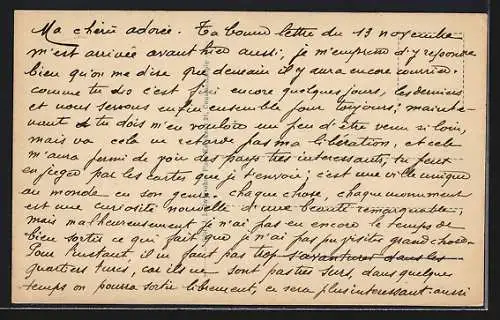 Ma chérie adorée. Ta bonne lettre du 13 novembre
m'est arrivée avant hier aussi, je m'empresse d'y répondre
bien qu'on me dise que demain il y aura encore courrier.
comme tu dis c'est fini encore quelques jours, les derniers
et nous serons enfin ensemble pour toujours; mainte-
nant tu dois m'en vouloir un peu d'être venu si loin,
mais va cela ne retarde pas ma libération, et cela
m'aura permi de voir des pays très intéressants, tu peux
en juger par les cartes que je t'envoie; c'est une ville unique
au monde en son genre. chaque chose, chaque monument
est une curiosité nouvelle d'une beauté remarquable,
mais malheureusement je n'ai pas eu encore le temps de
bien sortir ce qui fait que je n'ai pas pu visiter grand chose.
Pour l'instant, il ne faut pas trop s'aventurer dans les
quartiers turcs, car ils ne sont pas très surs, dans quelques
temps on pourra sortir librement, ce sera plus intéressant aussi